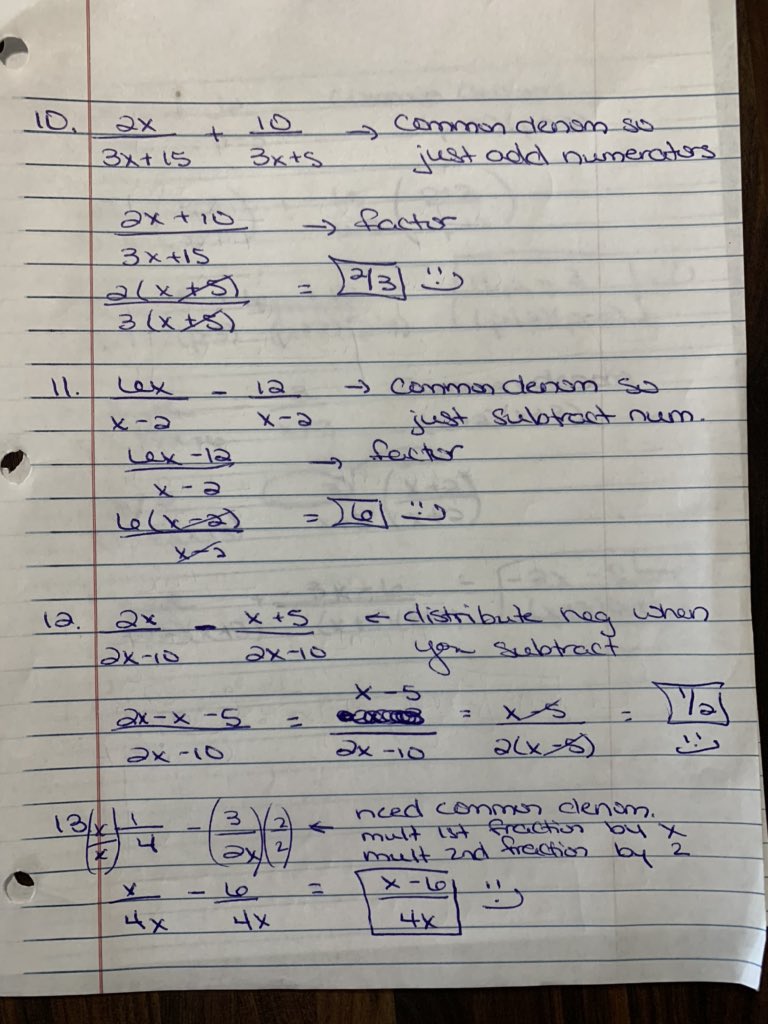 10. 2x/(3x+15) + 10/(3x+5) → Common denom so
just add numerators
(2x+10)/(3x+15) → factor
2(x+5)/3(x+5) = 2/3
11. 6x/(x-2) - 12/(x-2) → common denom so
just subtract num.
(6x-12)/(x-2) → factor
6(x-2)/(x-2) = 6
12. 2x/(2x-10) - (x+5)/(2x-10) ← distribute neg when
you subtract
(2x-x-5)/(2x-10) = (x-5)/(2x-10) = (x-5)/2(x-5) = 1/2
13 (x/x) 1/4 - (3/2x)(2/2) ← need common denom.
mult 1st fraction by x
mult 2nd fraction by 2
x/4x - 6/4x = (x-6)/4x